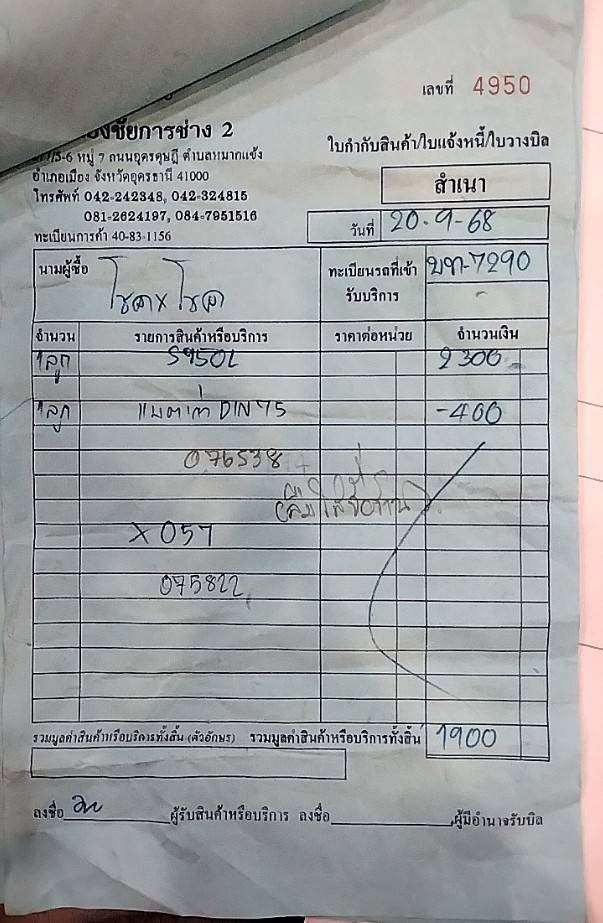 เลขที่ 4950
งชัยการช่าง 2
5-6 หมู่ 7 ถนนอุดรดุษฎี ตำบลหมากแข้ง
อำเภอเมือง จังหวัดอุดรธานี 41000
โทรศัพท์ 042-242348, 042-324815
081-2624197, 084-7951516
ทะเบียนการค้า 40-83-1156
ใบกำกับสินค้า/ใบแจ้งหนี้/ใบวางบิล
สำเนา
วันที่ 20-9-68
นามผู้ซื้อ
ทะเบียนรถที่เข้ารับบริการ 7290
จำนวน รายการสินค้าหรือบริการ ราคาต่อหน่วย จำนวนเงิน
1ลูก S95DL 2300
1ลูก แบตเก่า DIN 75 -400
076538
X057
075822
รวมมูลค่าสินค้าหรือบริการทั้งสิ้น (ตัวอักษร) รวมมูลค่าสินค้าหรือบริการทั้งสิ้น 1900
ลงชื่อ ผู้รับสินค้าหรือบริการ ลงชื่อ ผู้มีอำนาจรับบิล